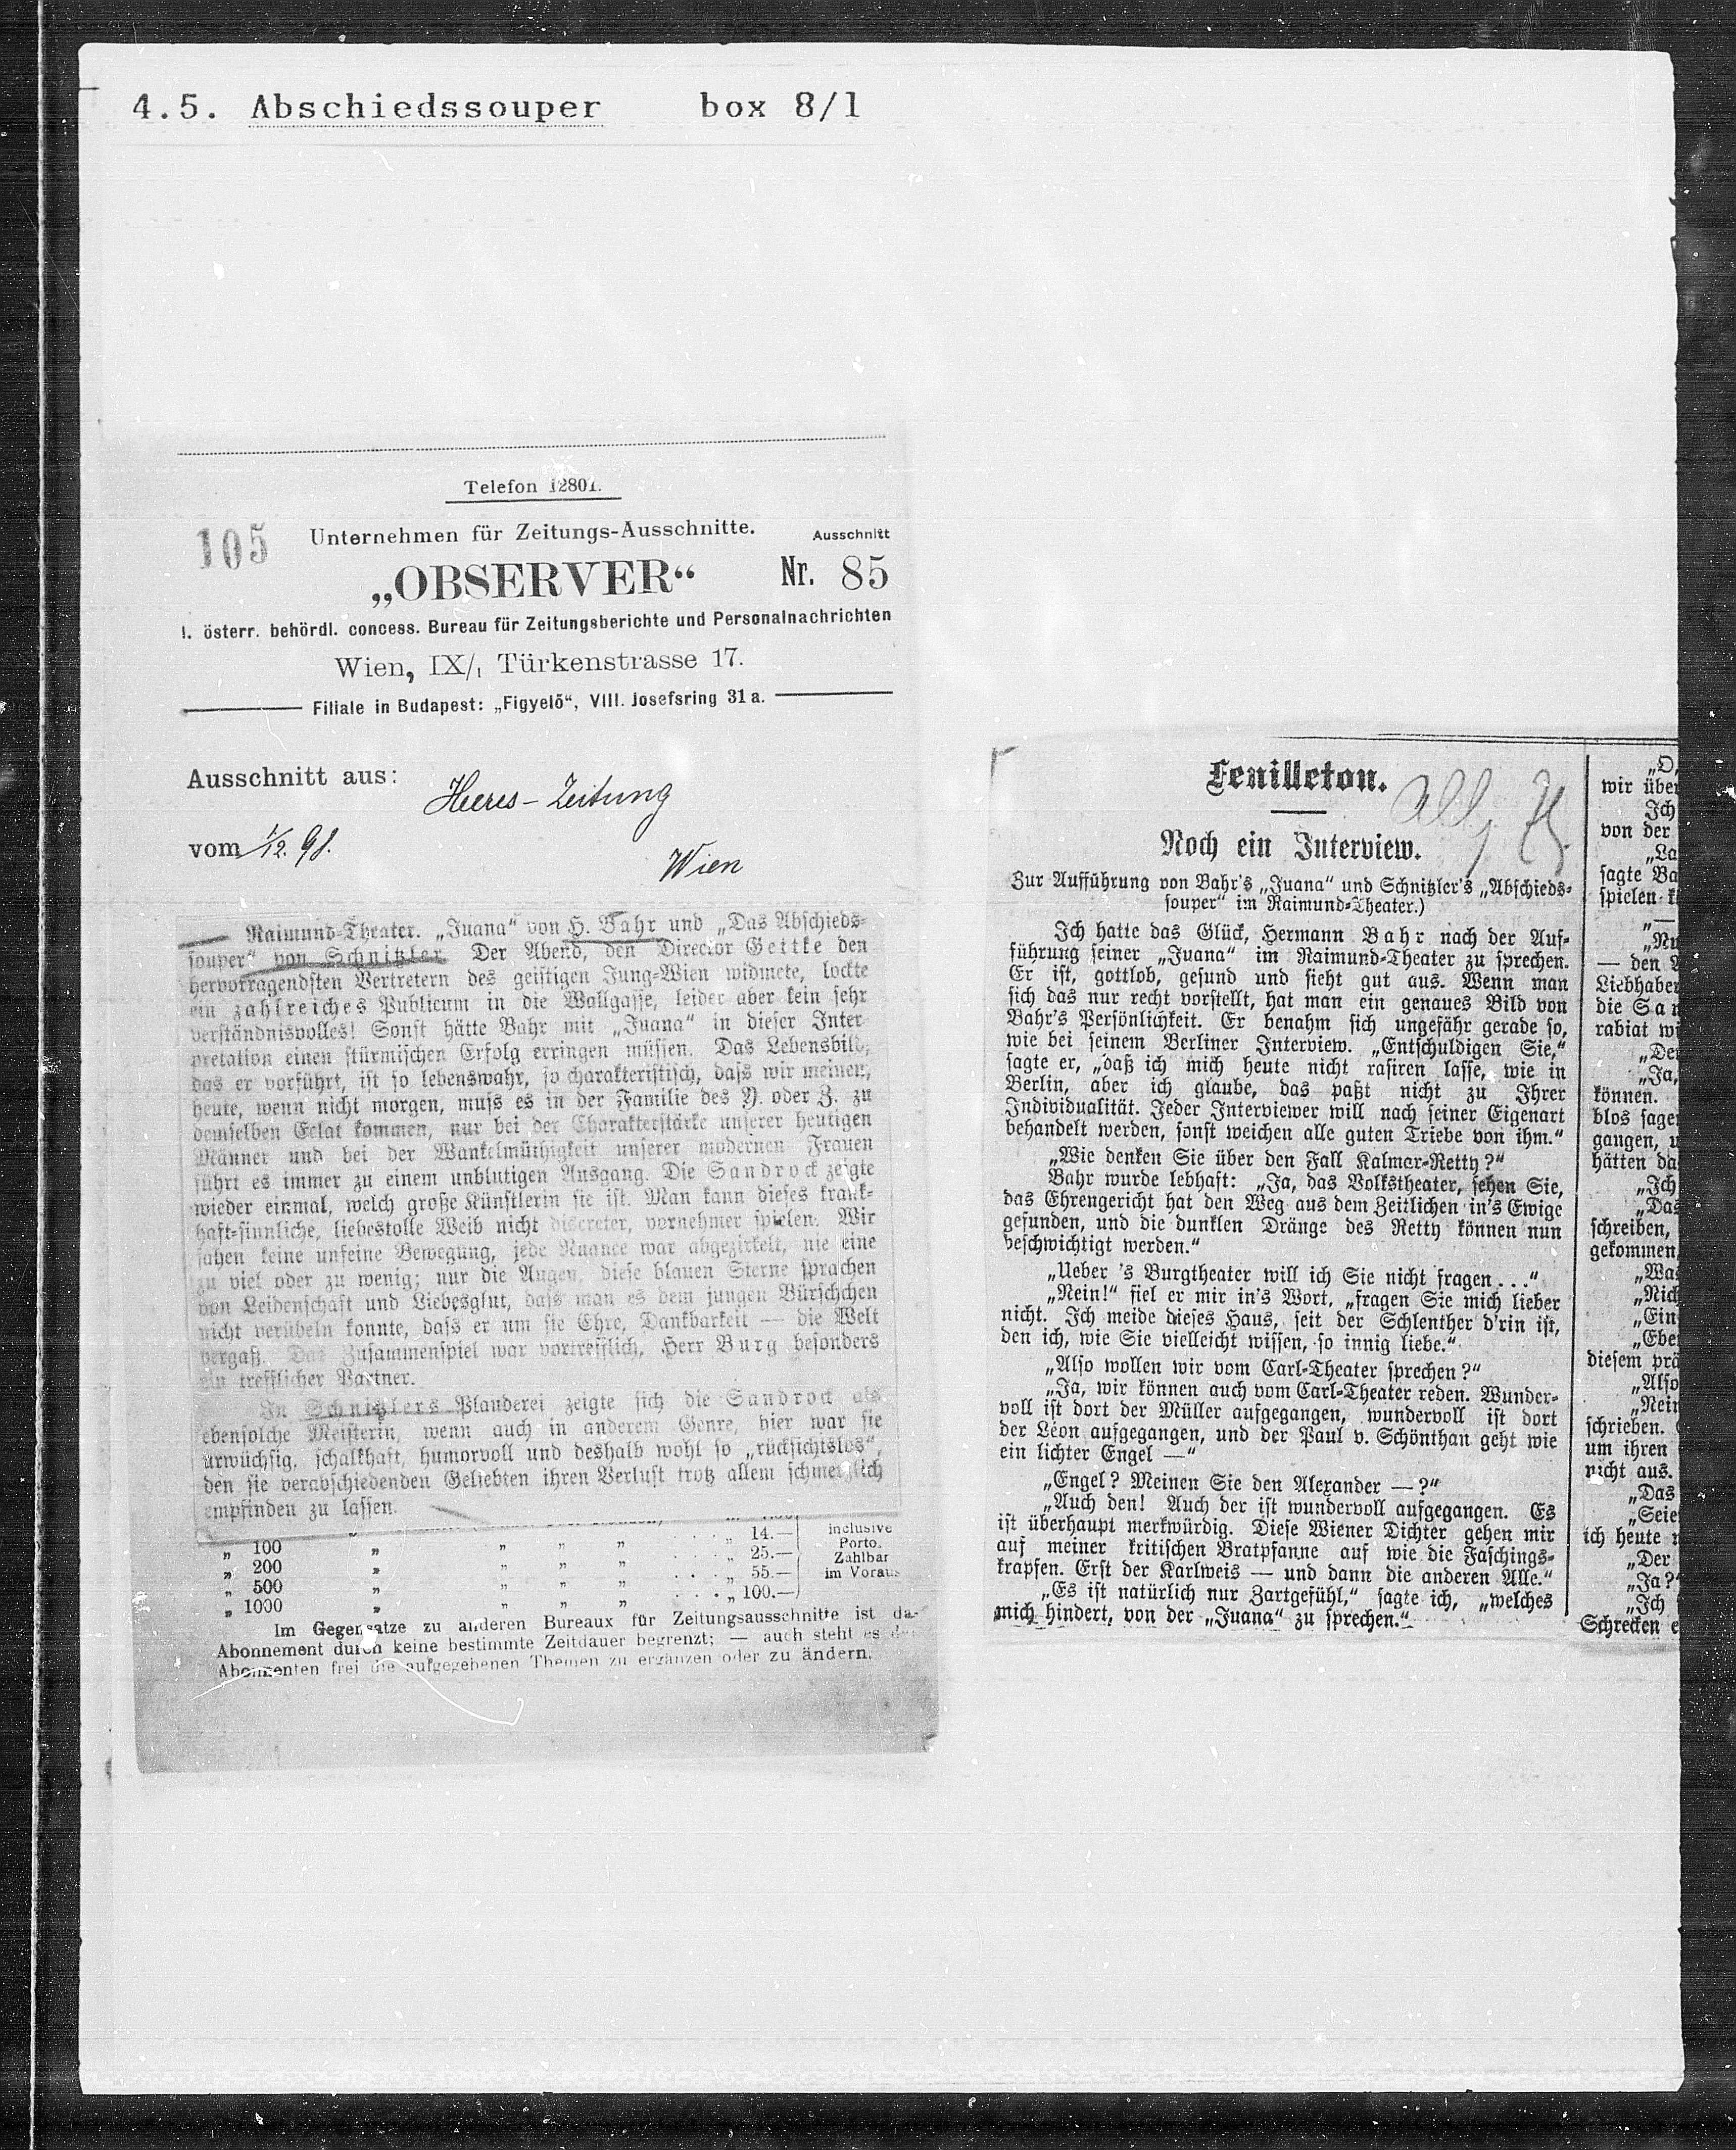 4.5. Abschiedssouper box 8/1
Telefon 12801.
105
Unternehmen für Zeitungs-Ausschnitte.
Ausschnitt
„OBSERVER“
Nr. 85
I. österr. behördl. concess. Bureau für Zeitungsberichte und Personalnachrichten
Wien, IX/1 Türkenstrasse 17.
Filiale in Budapest: „Figyelő“, VIII. Josefsring 31 a.
Ausschnitt aus:
Heeres-Zeitung
vom 1/12. 98.
Wien
— Raimund-Theater. „Juana“ von H. Bahr und „Das Abschieds-
souper“ von Schnitzler. Der Abend, den Director Geitke den
hervorragendsten Vertretern des geistigen Jung-Wien widmete, lockte
ein zahlreiches Publicum in die Wallgasse, leider aber kein sehr
verständnisvolles! Sonst hätte Bahr mit „Juana“ in dieser Inter-
pretation einen stürmischen Erfolg erringen müssen. Das Lebensbild,
das er vorführt, ist so lebenswahr, so charakteristisch, dass wir meinen,
heute, wenn nicht morgen, muss es in der Familie des Y. oder Z. zu
demselben Eclat kommen, nur bei der Charakterstärke unserer heutigen
Männer und bei der Wankelmüthigkeit unserer modernen Frauen
führt es immer zu einem unblutigen Ausgang. Die Sandrock zeigte
wieder einmal, welch große Künstlerin sie ist. Man kann dieses krank-
haft-sinnliche, liebestolle Weib nicht discreter, vornehmer spielen. Wir
sahen keine unfeine Bewegung, jede Nuance war abgezirkelt, nie eine
zu viel oder zu wenig; nur die Augen, diese blauen Sterne sprachen
von Leidenschaft und Liebesglut, dass man es dem jungen Bürschchen
nicht verübeln konnte, dass er um sie Ehre, Dankbarkeit — die Welt
vergaß. Das Zusammenspiel war vortrefflich, Herr Burg besonders
ein trefflicher Partner.
In Schnitzlers Plauderei zeigte sich die Sandrock als
ebensolche Meisterin, wenn auch in anderem Genre, hier war sie
urwüchsig, schalkhaft, humorvoll und deshalb wohl so „rücksichtslos“,
den sie verabschiedenden Geliebten ihren Verlust trotz allem schmerzlich
empfinden zu lassen.
„ 14.— inclusive
„ 100 „ „ „ „ . . . „ 25.— Porto.
„ 200 „ „ „ „ . . . „ 55.— Zahlbar
„ 500 „ „ „ „ . . . „ 100.— im Voraus
„ 1000 „ „ „ „
Im Gegensatze zu anderen Bureaux für Zeitungsausschnitte ist da-
Abonnement durch keine bestimmte Zeitdauer begrenzt; — auch steht es
Abonnenten frei die aufgegebenen Themen zu ergänzen oder zu ändern.
Feuilleton.
Allg. Z.
Noch ein Interview.
Zur Aufführung von Bahr's „Juana“ und Schnitzler's „Abschieds-
souper“ im Raimund-Theater.)
Ich hatte das Glück, Hermann Bahr nach der Auf-
führung seiner „Juana“ im Raimund-Theater zu sprechen.
Er ist, gottlob, gesund und sieht gut aus. Wenn man
sich das nur recht vorstellt, hat man ein genaues Bild von
Bahr's Persönlichkeit. Er benahm sich ungefähr gerade so,
wie bei seinem Berliner Interview. „Entschuldigen Sie,“
sagte er, „daß ich mich heute nicht rasiren lasse, wie in
Berlin, aber ich glaube, das paßt nicht zu Ihrer
Individualität. Jeder Interviewer will nach seiner Eigenart
behandelt werden, sonst weichen alle guten Triebe von ihm.“
„Wie denken Sie über den Fall Kalmar-Retty?“
Bahr wurde lebhaft: „Ja, das Volkstheater, sehen Sie,
das Ehrengericht hat den Weg aus dem Zeitlichen in's Ewige
gefunden, und die dunklen Dränge des Retty können nun
beschwichtigt werden.“
„Ueber 's Burgtheater will ich Sie nicht fragen . . .“
„Nein!“ fiel er mir in's Wort, „fragen Sie mich lieber
nicht. Ich meide dieses Haus, seit der Schlenther d'rin ist,
den ich, wie Sie vielleicht wissen, so innig liebe.“
„Also wollen wir vom Carl-Theater sprechen?“
„Ja, wir können auch vom Carl-Theater reden. Wunder-
voll ist dort der Müller aufgegangen, wundervoll ist dort
der Léon aufgegangen, und der Paul v. Schönthan geht wie
ein lichter Engel —“
„Engel? Meinen Sie den Alexander —?“
„Auch den! Auch der ist wundervoll aufgegangen. Es
ist überhaupt merkwürdig. Diese Wiener Dichter gehen mir
auf meiner kritischen Bratpfanne auf wie die Faschings-
krapfen. Erst der Karlweis — und dann die anderen Alle.“
„Es ist natürlich nur Zartgefühl,“ sagte ich, „welches
mich hindert, von der „Juana“ zu sprechen.“
„O,
wir über
Ich
von der
„La
sagte Ba
spielen k
—
„
„Nu
— den
Liebhaber
die San
rabiat wi
„De
„Ja,
können.
blos sage
gangen, u
hätten da
„Ich
„Das
schreiben,
gekommen,
„Was
„Nich
„Ein
„Ebe
diesem prä
„Also
„Nein
schrieben.
um ihren
nicht aus.
„Das
„Seie
ich heute
„Der
„Ja?“
„Ich
Schrecken e